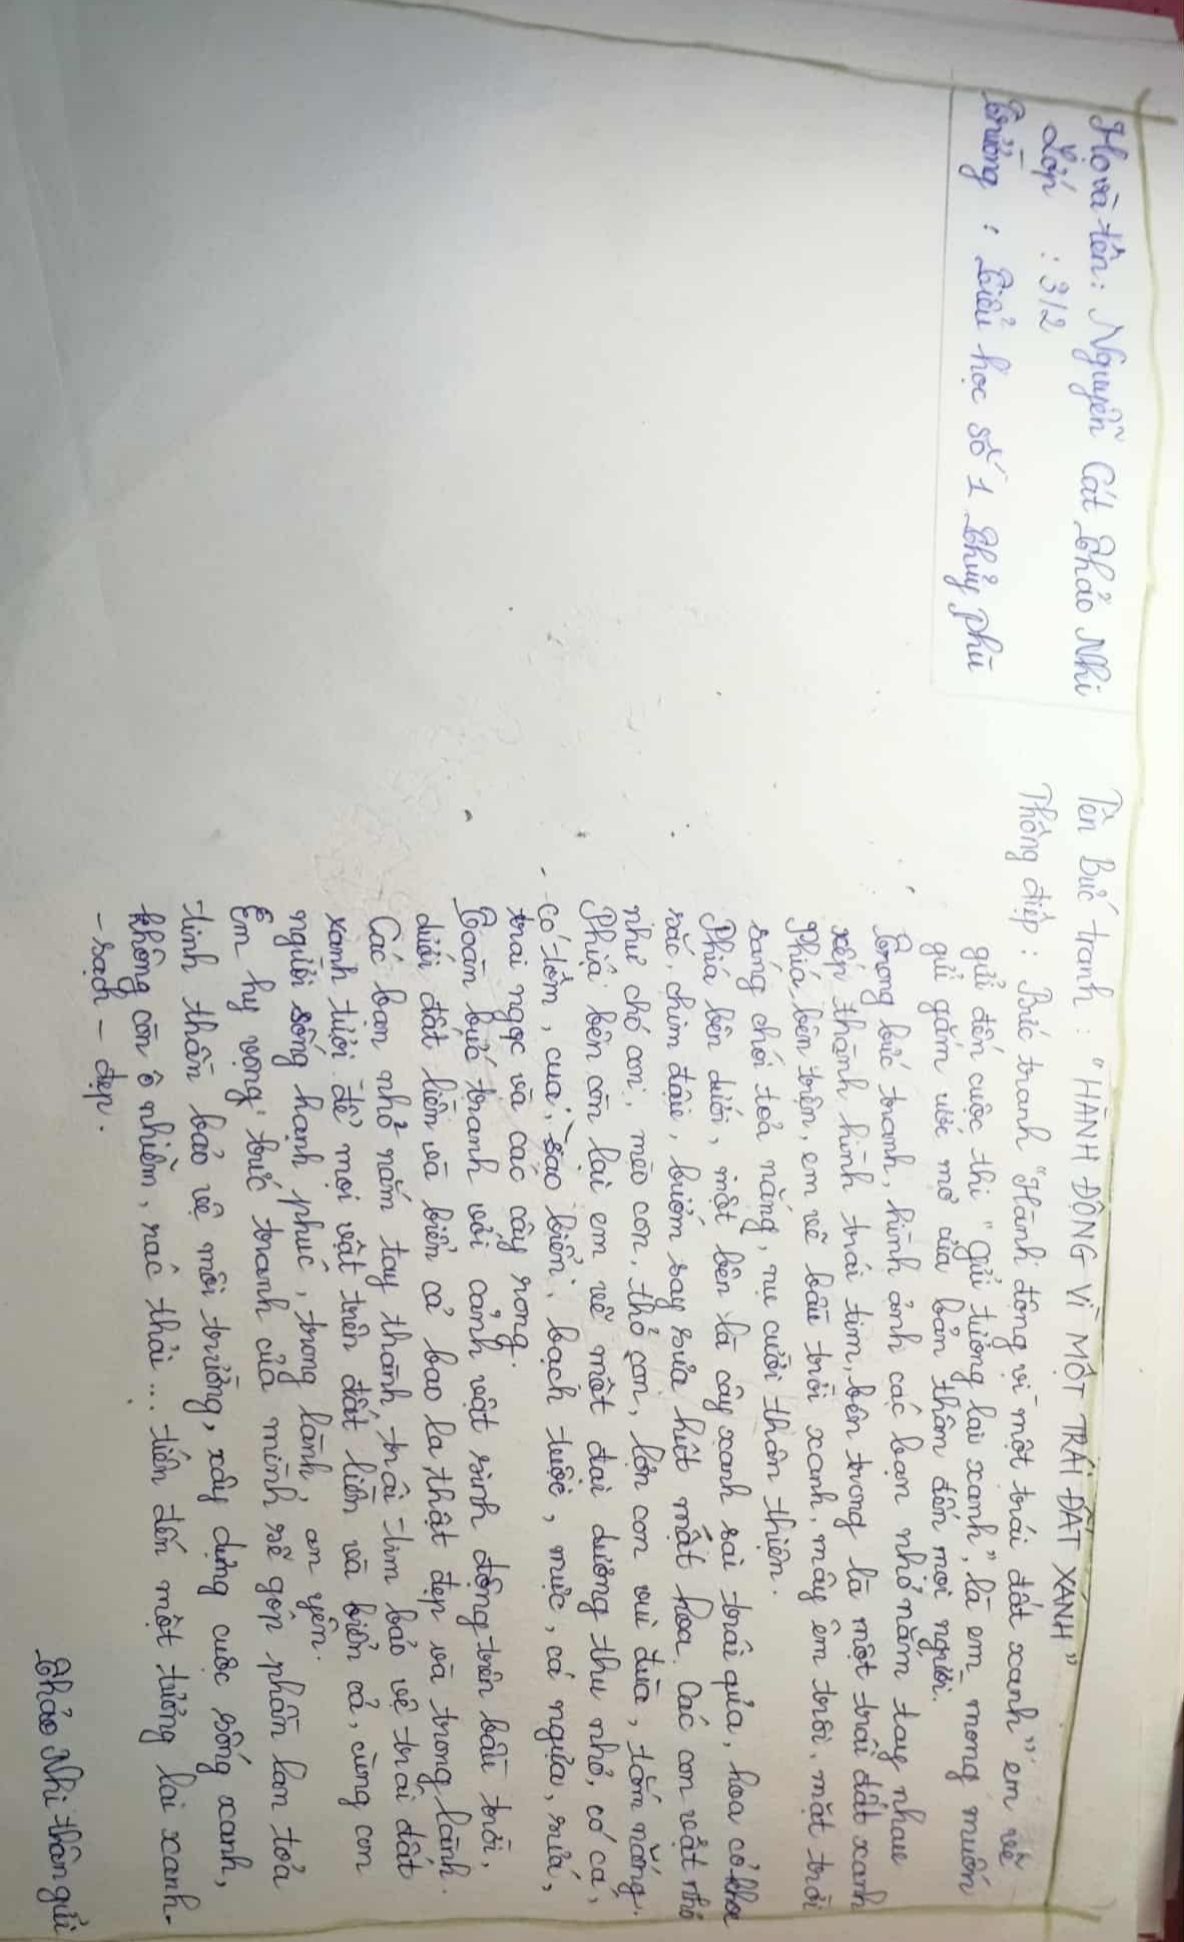 Họ và tên: Nguyễn Cát Thảo Nhi
Lớp : 3/2
Trường : Tiểu học số 1 Thủy Phù
Tên Bức tranh : "HÀNH ĐỘNG VÌ MỘT TRÁI ĐẤT XANH"
Thông điệp : Bức tranh "Hành động vì một trái đất xanh" em vẽ
gửi đến cuộc thi "Gửi tương lai xanh", là em mong muốn
gửi gắm ước mơ của bản thân đến mọi người.
Trong bức tranh, hình ảnh các bạn nhỏ nắm tay nhau
xếp thành hình trái tim, bên trong là một trái đất xanh
Phía bên trên, em vẽ bầu trời xanh, mây êm trôi, mặt trời
sáng chói tỏa nắng, nụ cười thân thiện.
Phía bên dưới, một bên là cây xanh sai trái qủa, hoa cỏ khoe
sắc, chim đậu, bướm say sưa hút mật hoa. Các con vật nhỏ
như chó con, mèo con, thỏ con, lợn con vui đùa, tắm nắng.
Phía bên còn lại em vẽ một đại dương thu nhỏ, có cá,
có tôm, cua, sao biển, bạch tuộc, mực, cá ngựa, sứa,
trai ngọc và các cây rong.
Toàn bức tranh với cảnh vật sinh động trên bầu trời,
dưới đất liền và biển cả bao la, thật đẹp và trong lành.
Các bạn nhỏ nắm tay thành trái tim bảo vệ trái đất
xanh tươi để mọi vật trên đất liền và biển cả, cùng con
người sống hạnh phúc, trong lành, an yên.
Em hy vọng bức tranh của mình sẽ góp phần lan tỏa
tinh thần bảo vệ môi trường, xây dựng cuộc sống xanh,
không còn ô nhiễm, rác thải... tiến đến một tương lai xanh-
-sạch - đẹp.
Thảo Nhi thân gửi